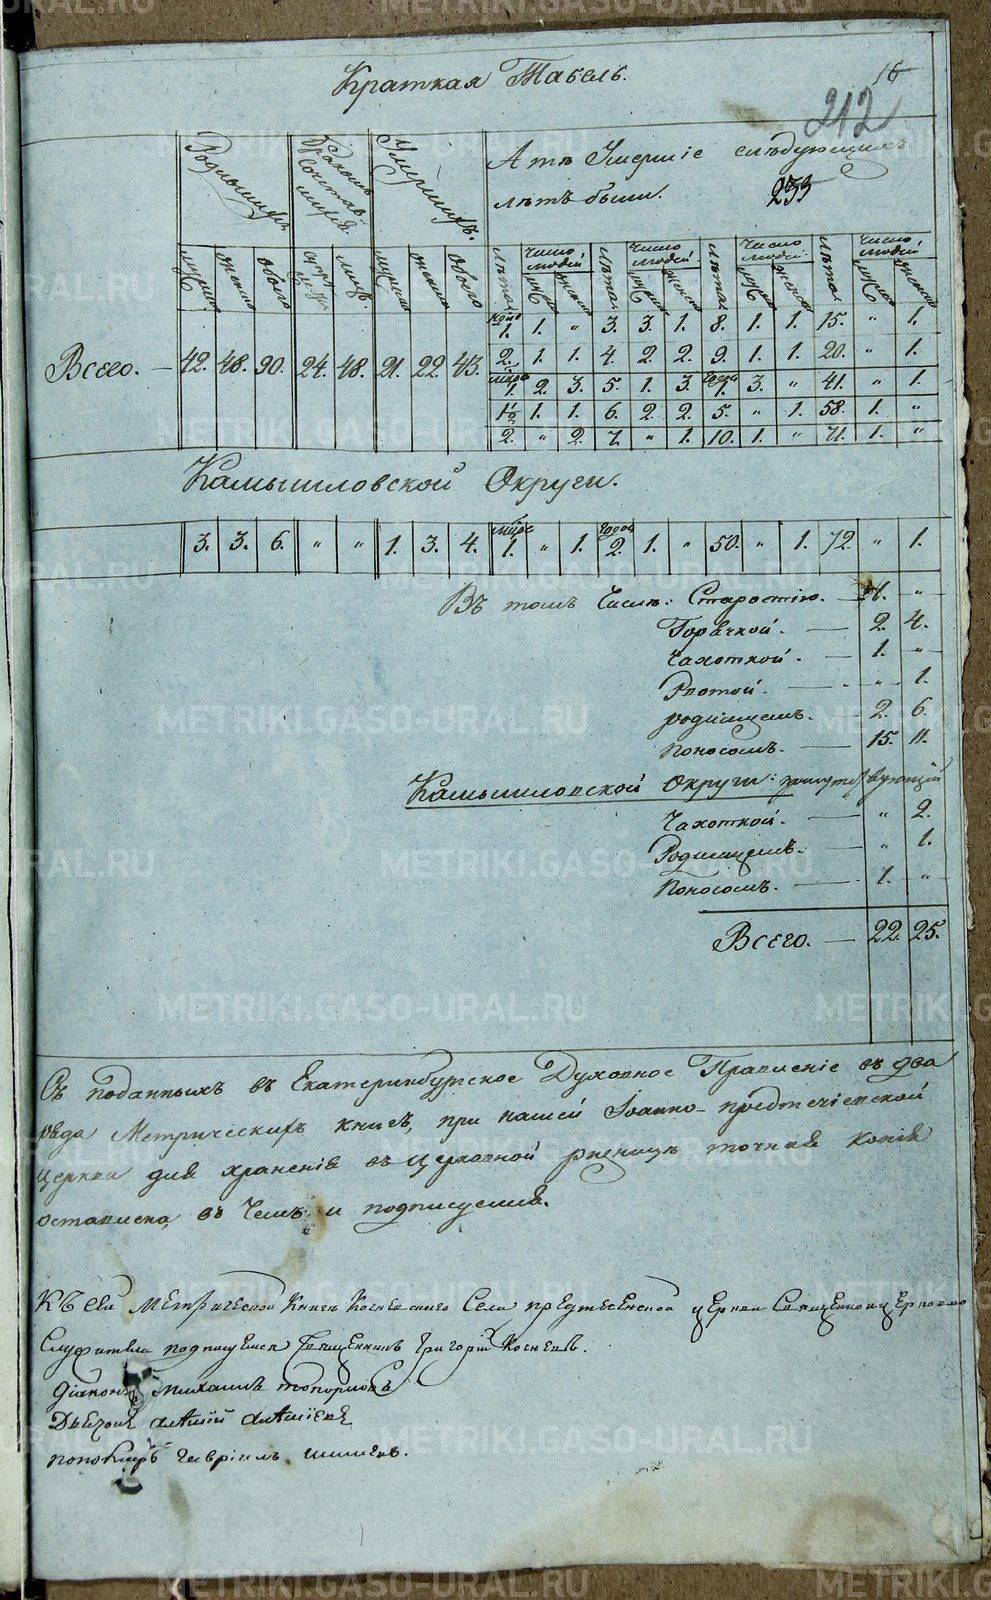 Краткая Табель.
16
212
Родившихъ
Бракомъ сочетавшихся
Умершихъ.
А тѣ Умершіе слѣдующихъ
лѣтъ были.
233
мужеска женска обоего супружествъ лицъ мужеска женска обоего лѣта Число людей мужеска женска лѣта Число людей мужеска женска лѣта Число людей мужеска женска лѣта Число людей мужеска женска
1. 1. " 3. 3. 1. 8. 1. 1. 15. " 1.
Всего. — 42. 48. 90. 24. 48. 21. 22. 43. 2. 1. 1. 4. 2. 2. 9. 1. 1. 20. " 1.
1. 2. 3. 5. 1. 3. 1. 3. " 41. " 1.
1½ 1. 1. 6. 2. 2. 5. " 1. 58. 1. "
2. " 2. 7. " 1. 10. 1. " 71. 1. "
Камышловской Округи.
3. 3. 6. " " 1. 3. 4. 1. " 1. годов 2. 1. " 50. " 1. 72. " 1.
Въ томъ Числѣ: Старостію. — 1. "
Горячкой. — 2. 4.
Чахоткой. — 1. "
Рвотой. — " 1.
родимцемъ. — 2. 6.
Поносомъ. — 15. 11.
Камышловской Округи:
Чахоткой. — " 2.
Родимцемъ. — " 1.
Поносомъ. — 1. "
Всего. — 22. 25.
Съ поданныхъ въ Екатеринбургское Духовное Правленіе въ два
ряда Метрическихъ книгъ, при нашей Іоанно-предтечіевской
церкви для храненія въ церковной ризницѣ точная копія
оставлена, въ чемъ и подписуемся.
Къ сей метрической книге Коневскаго Села предтеченской церкви Священноцерковно
служители подписуемся Священникъ Григорій Коневъ.
діаконъ Михаилъ топорковъ
Дьячокъ
пономарь Гавріилъ
METRIKI.GASO-URAL.RU